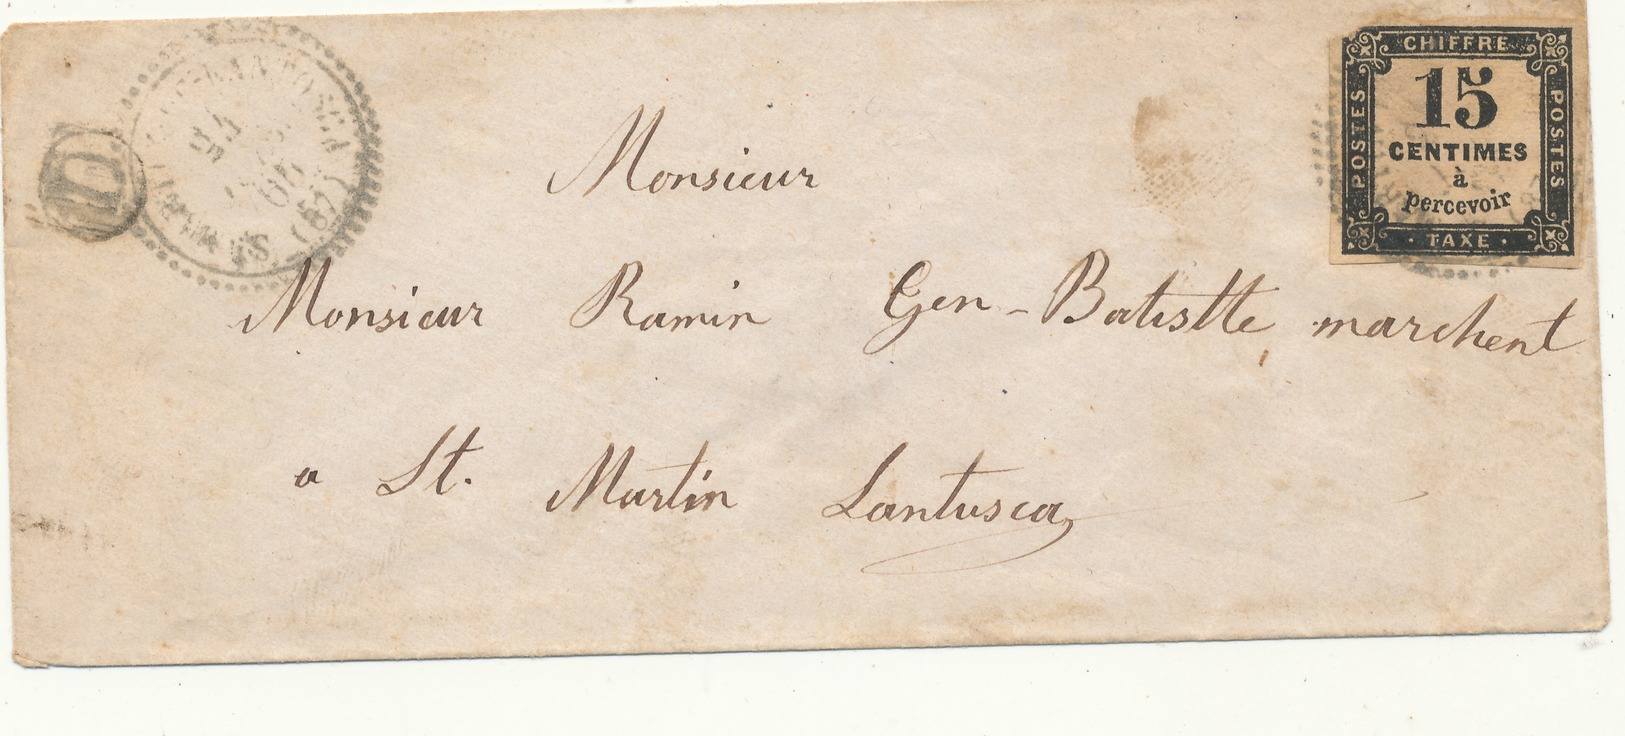 CHIFFRE
POSTES
15
CENTIMES
à
percevoir
POSTES
TAXE
D
(87)
Monsieur
Monsieur Ramin Gen-Batistte marchent
a St. Martin Lantusca